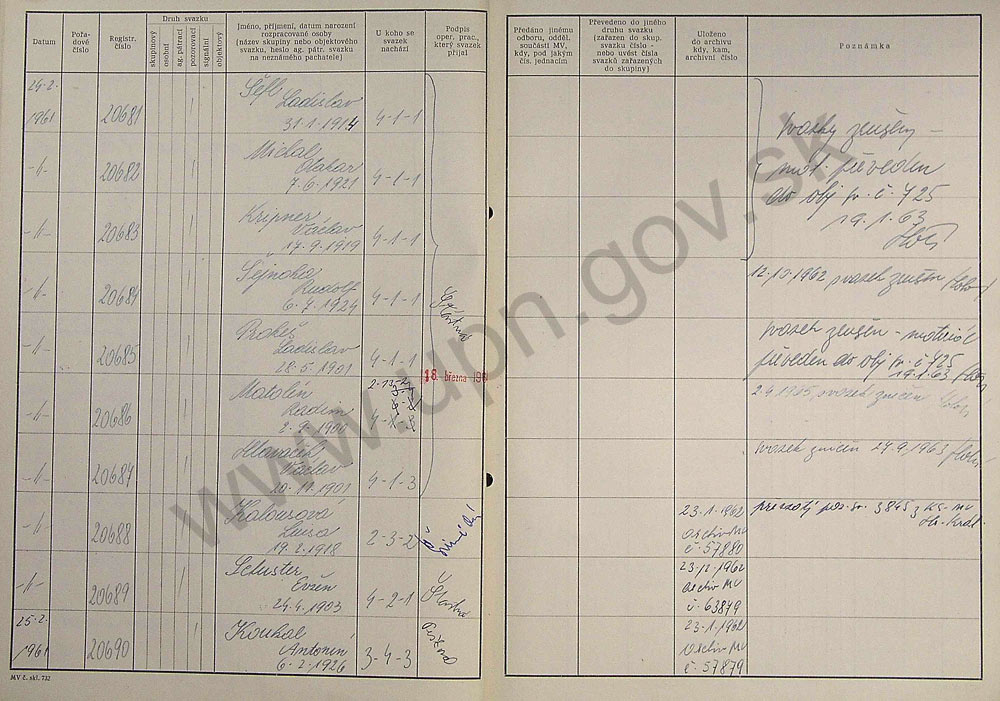 Datum
Pořa-
dové
číslo
Registr.
číslo
Druh svazku
skupinový
osobní
ag. pátrací
pozorovací
signální
objektový
Jméno, příjmení, datum narození
rozpracované osoby
(název skupiny nebo objektového
svazku, heslo ag. pátr. svazku
na neznámého pachatele)
U koho se
svazek
nachází
Podpis
oper. prac.,
který svazek
přijal
Předáno jinému
odboru, odděl.
součásti MV,
kdy, pod jakým
čís. jednacím
Převedeno do jiného
druhu svazku
(zařazen do skup.
svazku číslo -
nebo uvést čísla
svazků zařazených
do skupiny)
Uloženo
do archivu
kdy, kam,
archivní číslo
Poznámka
24.2.
1961
20681
Šéfl
Ladislav
31.1.1914
4-1-1
-II-
20682
Michal
Otakar
7.6.1921
4-1-1
-II-
20683
Kripner
Václav
17.9.1919
4-1-1
svazky zrušeny -
mat. převeden
do obj sv. č. 725
19.1.63
-II-
20684
Šejnoha
Rudolf
6.7.1924
4-1-1
Šťastná
12.10.1962 svazek zrušen
-II-
20685
Prokeš
Ladislav
28.5.1901
4-1-1
18. března 196
svazek zrušen - materiál
převeden do obj sv. č 725
19.1.63
-II-
20686
Matolín
Radim
2.9.1900
svazek zničen
-II-
20687
Hlaváček
Václav
20.11.1901
4-1-3
svazek zničen 27.9.1963
-II-
20688
Kalousová
19.2.1918
2-3-2
23.1.1962
Archiv MV
č. 57880
převzatý pos. sv. 3845 z KS-MV
Hr. Král.
-II-
20689
Schuster
Evžen
24.4.1903
4-2-1
Šťastná
23.12.1962
Archiv MV
č. 63879
25.2.
1961
20690
Koukal
Antonín
6.2.1926
3-4-3
23.1.1962
Archiv MV
č. 57879
MV č. skl. 732
www.upn.gov.sk